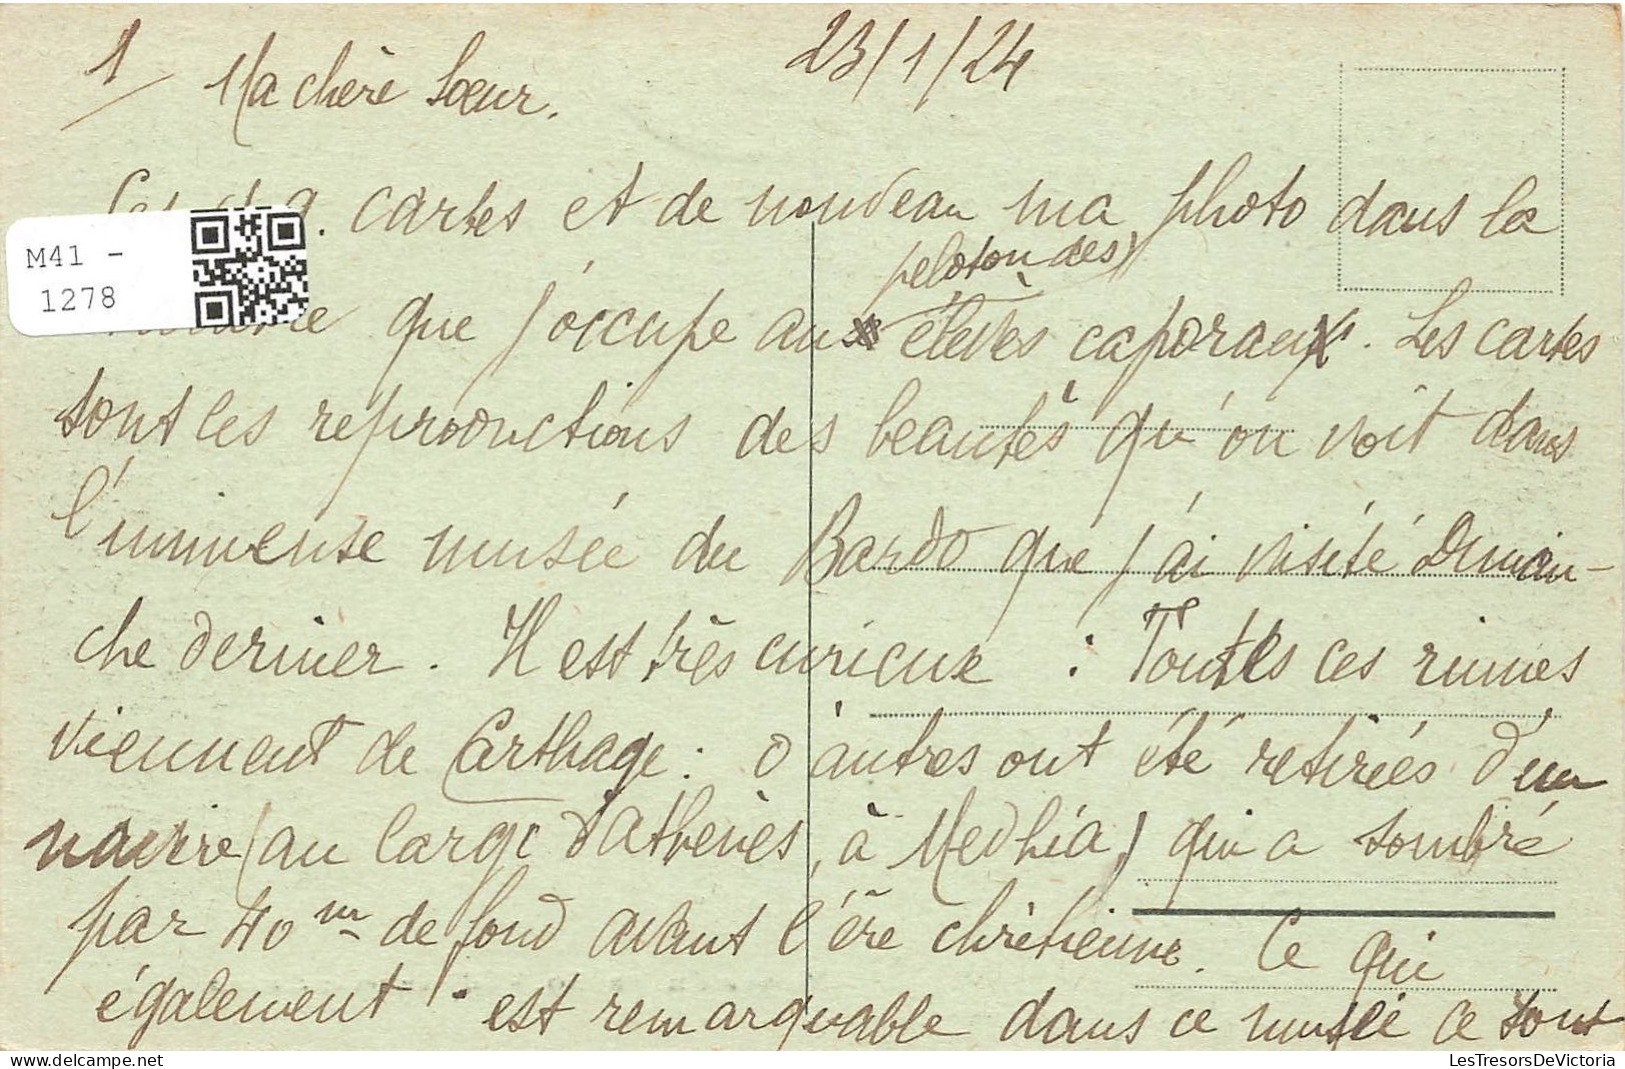 1/ Ma chère Sœur. 23/1/24
cartes et de nouveau ma photo dans la
peloton des
que j'occupe aux élèves caporaux. Les cartes
sont les reproductions des beautés qu'on voit dans
l'immense musée du Bardo que j'ai visité Diman-
che dernier. Il est très curieux : Toutes ces ruines
viennent de Carthage : d'autres ont été retirées d'un
navire (au large d'Athènes, à Medhia) qui a sombré
par 40 m de fond avant l'ère chrétienne. Ce qui
également est remarquable dans ce musée ce sont
M41 -
1278
LesTresorsDeVictoria.com